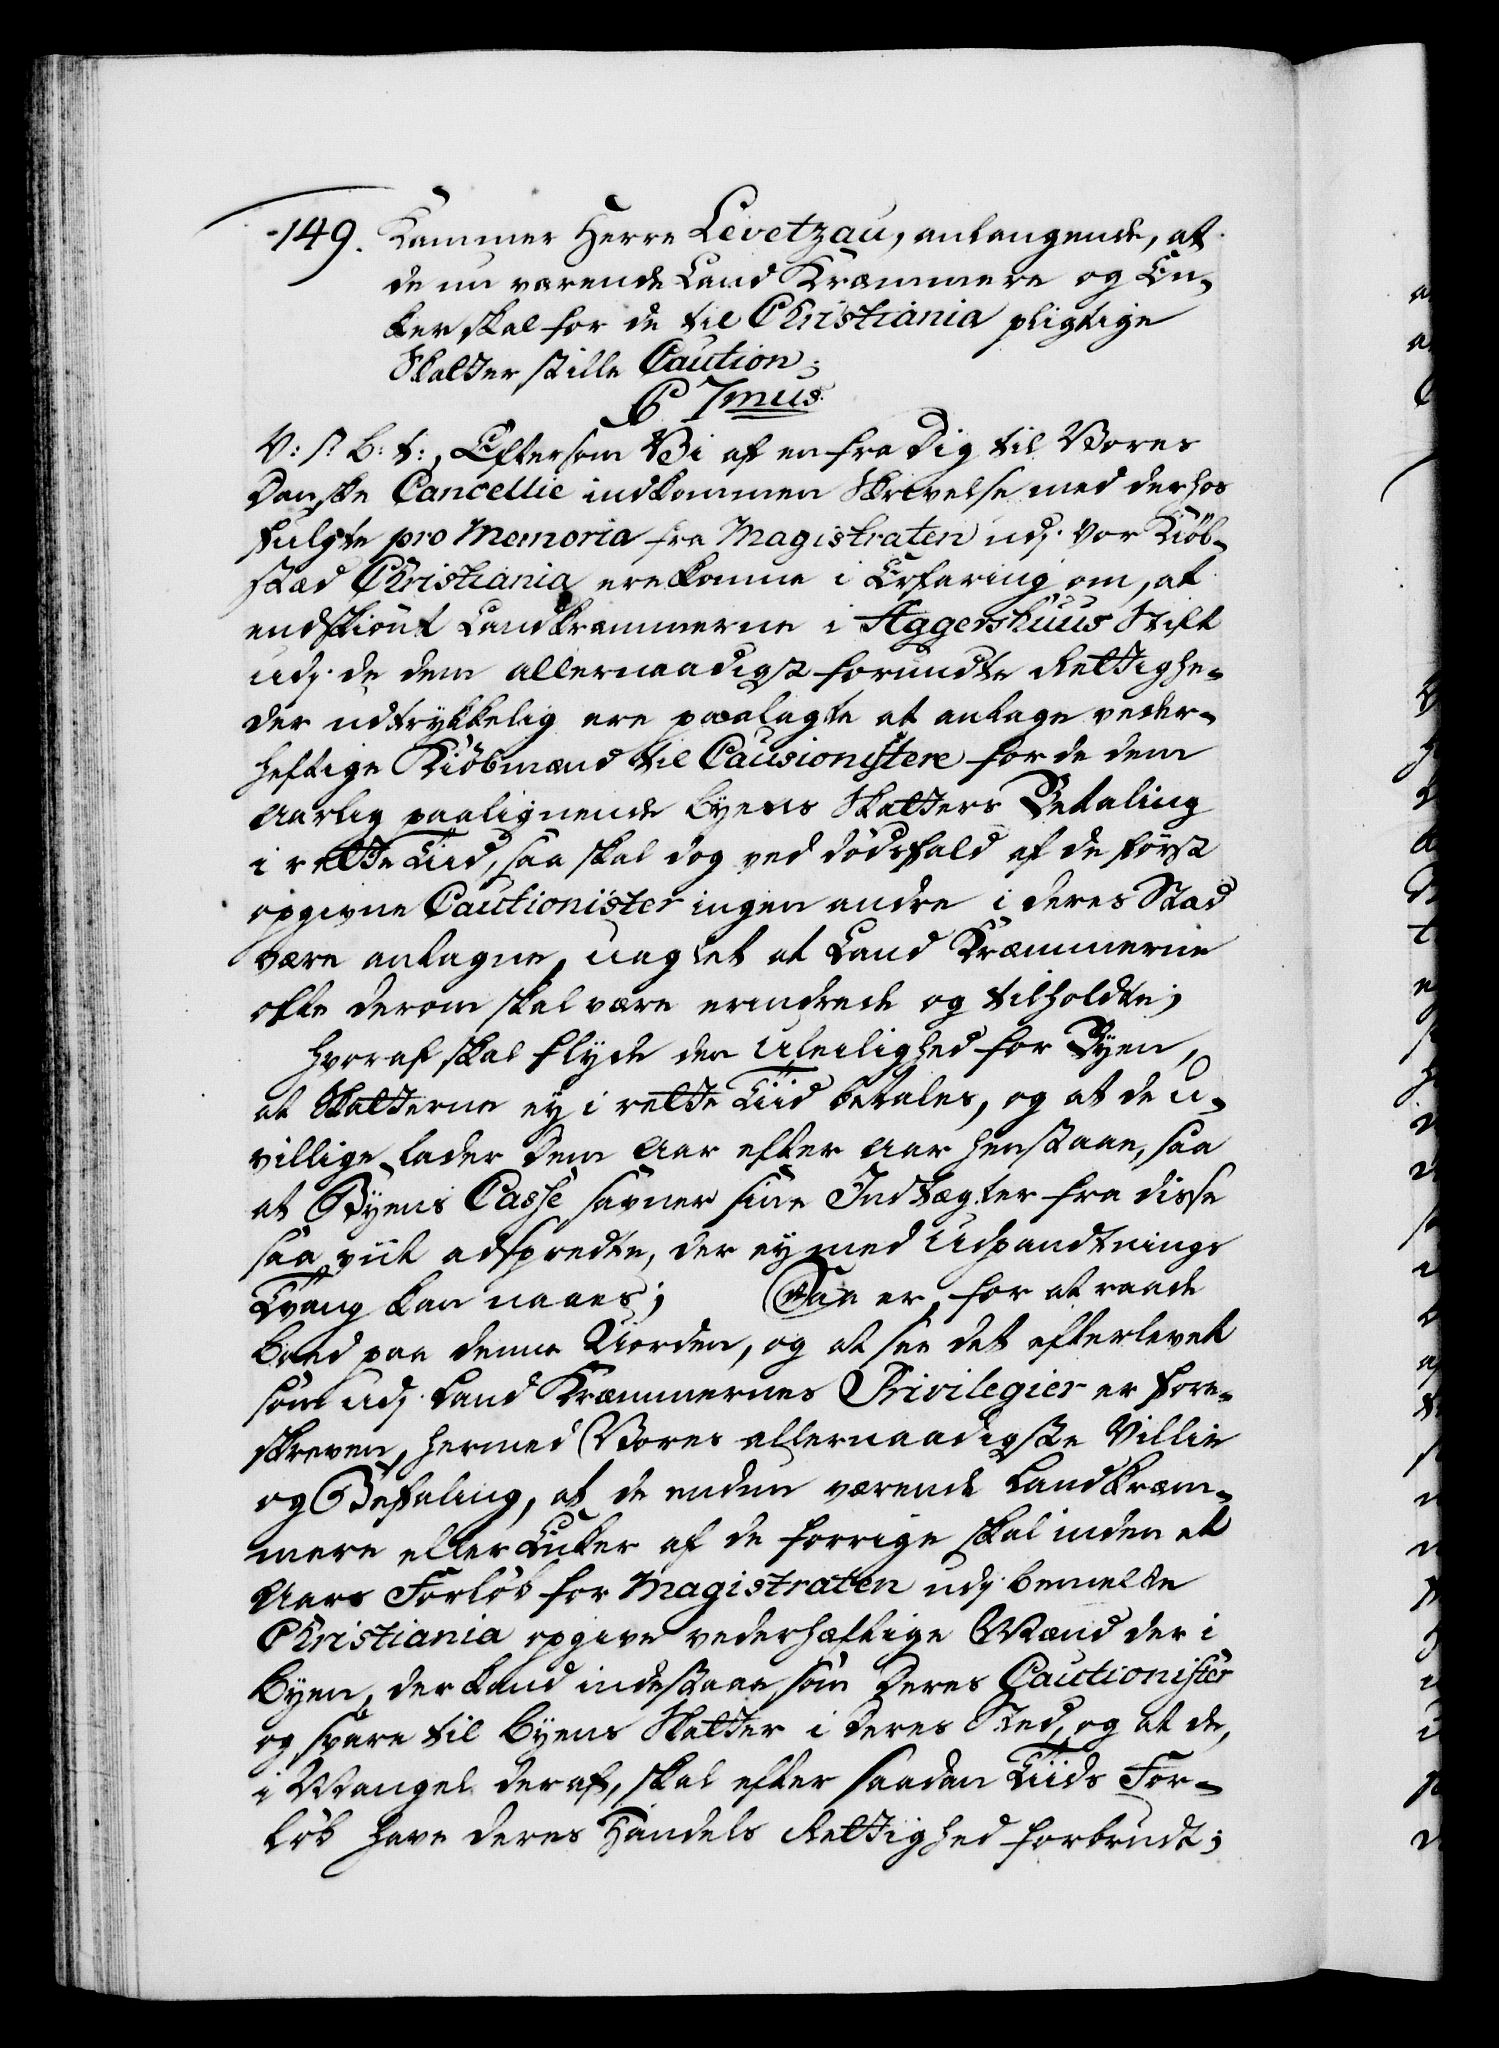 149. Kammer Herre Levetzau, anlangende, at
de nu værende Land Kræmmere og En-
ker skal for de til Christiania pligtige
Skatter stille Caution;
C 7mus.
V: S: B: t:, Eftersom Vi af en fra Dig til Vores
Danske Cancellie indkommen Skrivelse med derhos
fulgte pro Memoria fra Magistraten udj Vor Kiöb-
stad Christiania ere komne i Erfaring om, at
endskiönt Landkræmmerne i Aggershuus Stift
udj de dem allernaadigst forundte Rettighe-
der udtrykkelig ere paalagte at antage veder-
heftige Kiöbmænd til Causionistere for de dem
Aarlig paalignende Byens Skatters Betaling
i rette Tiid, saa skal dog ved dödsfald af de först
opgivne Cautionister ingen andre i deres Stad
være antagne, uagtet at Land Kræmmerne
ofte derom skal være erindrede og tilholdte;
hvoraf skal flyde den Uleilighed for Byen,
at Skatterne ey i rette Tiid betales, og at de u-
villige lader dem Aar efter Aar henstaae, saa
at Byens Casse savner sine Indtægter fra disse
saa viit adspredte, der ey med Udpandtnings
Tvang kan naaes; Saa er, for at raade
Bood paa denne Uorden, og at see det efterlevet
som udj Land Kræmmernes Privilegier er fore-
skreven, hermed Vores allernaadigste Villie
og Befaling, at de endnu værende Landkræm-
mere eller Enker af de forrige skal inden et
Aars Forlöb for Magistraten udj bemelte
Christiania opgive vederhæftige Mænd der i
Byen, der kand indestaae som deres Cautionister
og svare til Byens Skatter i deres Sted, og at de,
i Mangel deraf, skal efter saadan Tiids For-
löb have deres Handels Rettighed forbrudt;